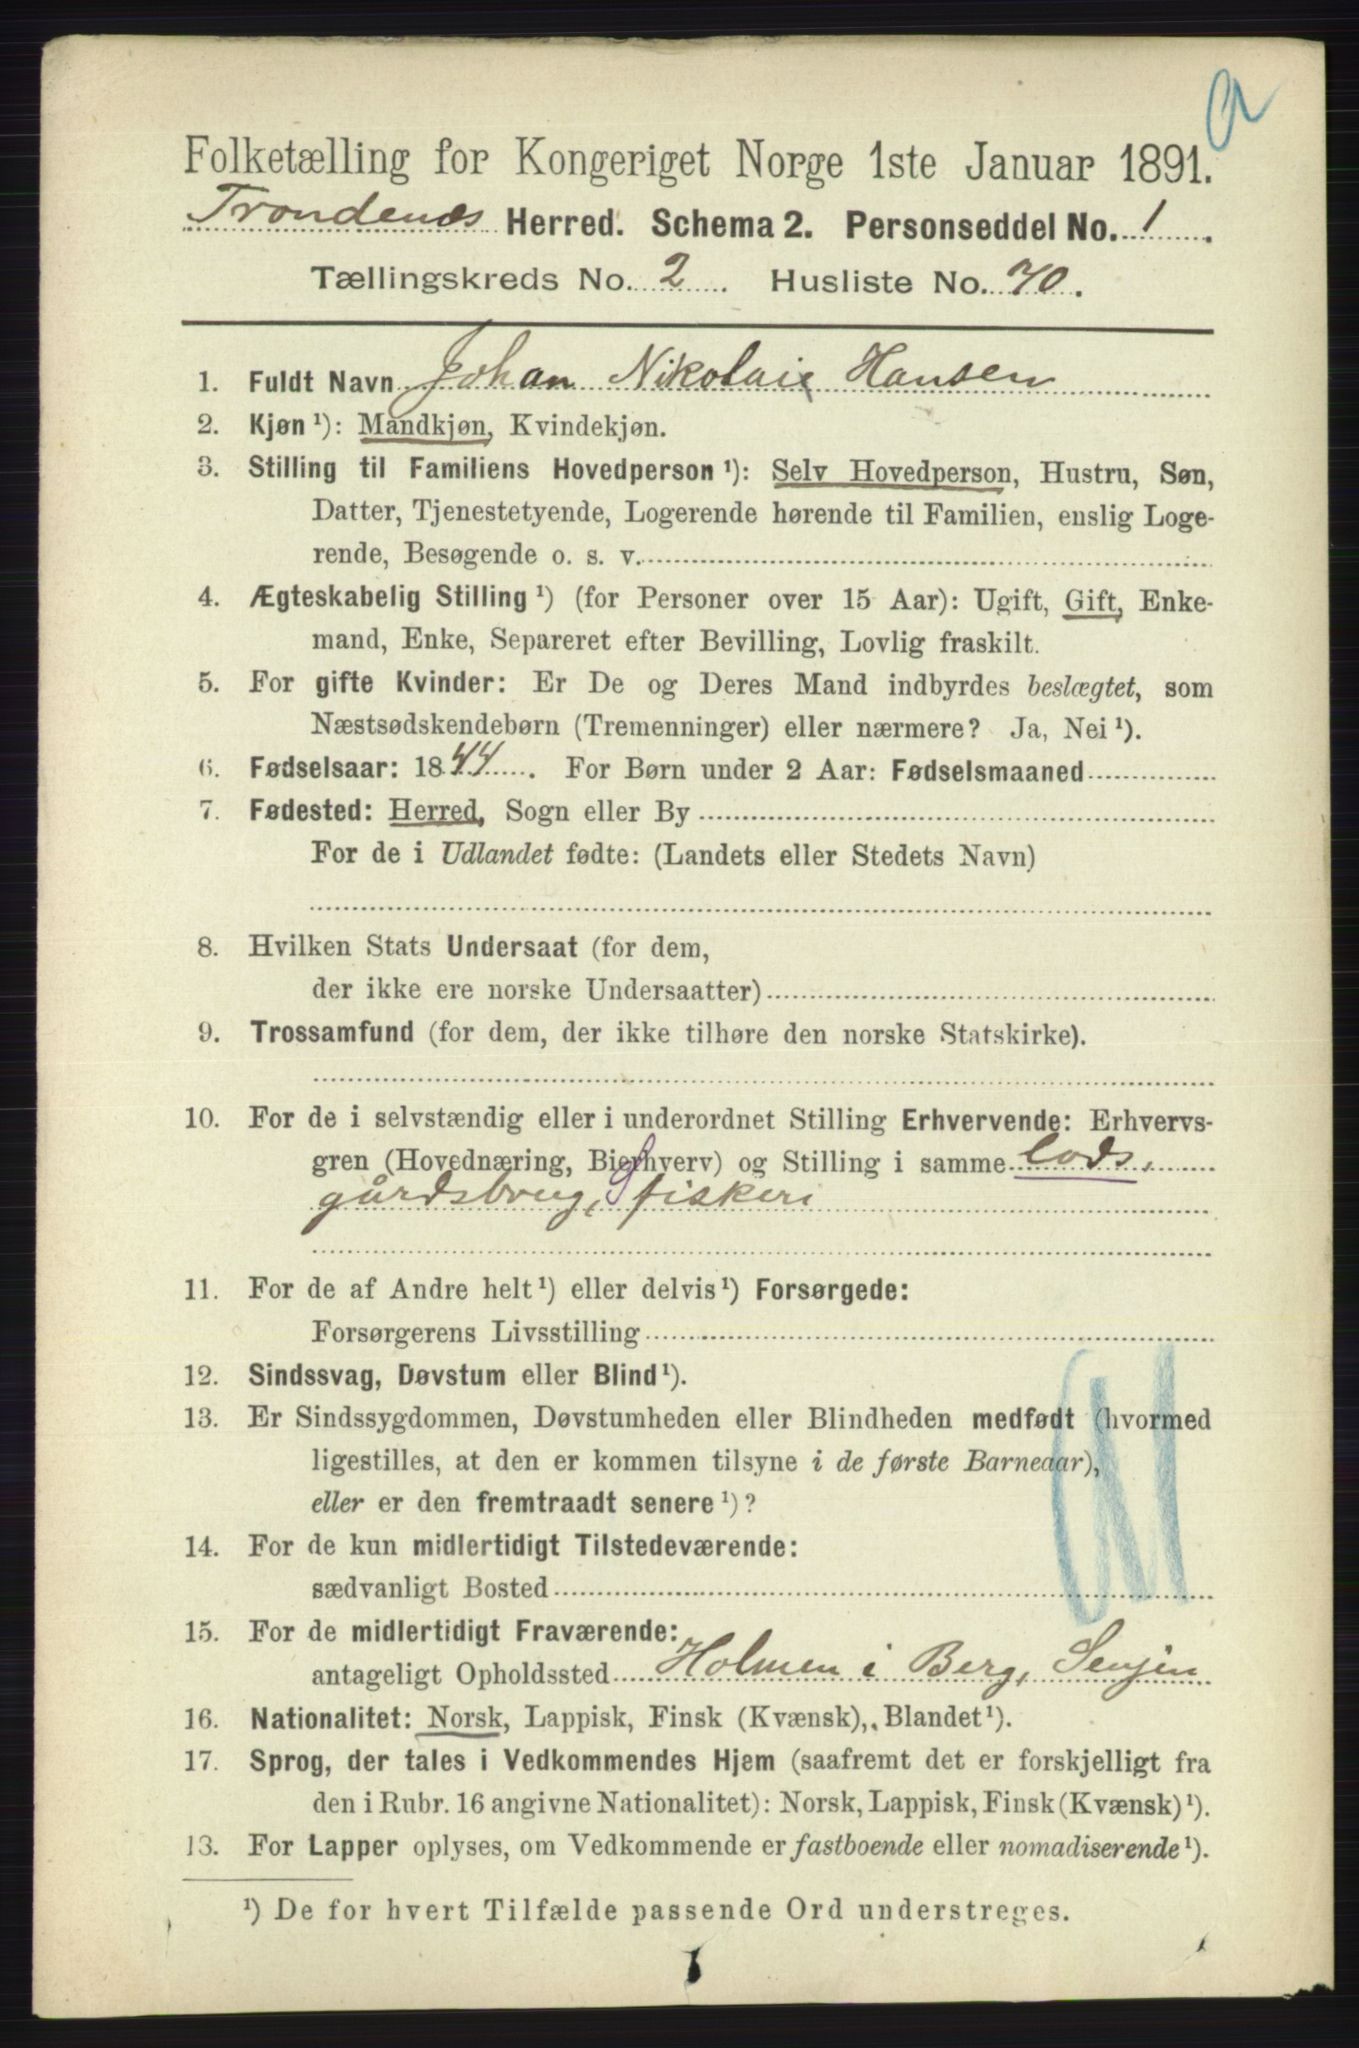 Folketælling for Kongeriget Norge 1ste Januar 1891.
Trondenæs Herred. Schema 2. Personseddel No. 1.
Tællingskreds No. 2. Husliste No. 70.
1. Fuldt Navn Johan Nikolai Hansen
2. Kjøn ¹): Mandkjøn, Kvindekjøn.
3. Stilling til Familiens Hovedperson ¹): Selv Hovedperson, Hustru, Søn,
Datter, Tjenestetyende, Logerende hørende til Familien, enslig Loge-
rende, Besøgende o. s. v.
4. Ægteskabelig Stilling ¹) (for Personer over 15 Aar): Ugift, Gift, Enke-
mand, Enke, Separeret efter Bevilling, Lovlig fraskilt.
5. For gifte Kvinder: Er De og Deres Mand indbyrdes beslægtet, som
Næstsødskendebørn (Tremenninger) eller nærmere? Ja, Nei ¹).
6. Fødselsaar: 1844. For Børn under 2 Aar: Fødselsmaaned
7. Fødested: Herred, Sogn eller By
For de i Udlandet fødte: (Landets eller Stedets Navn)
8. Hvilken Stats Undersaat (for dem,
der ikke ere norske Undersaatter)
9. Trossamfund (for dem, der ikke tilhøre den norske Statskirke).
10. For de i selvstændig eller i underordnet Stilling Erhvervende: Erhvervs-
gren (Hovednæring, Bierhverv) og Stilling i samme Lods,
gårdsbrug, S fiskeri
11. For de af Andre helt ¹) eller delvis ¹) Forsørgede:
Forsørgerens Livsstilling
12. Sindssvag, Døvstum eller Blind ¹).
13. Er Sindssygdommen, Døvstumheden eller Blindheden medfødt (hvormed
ligestilles, at den er kommen tilsyne i de første Barneaar),
eller er den fremtraadt senere ¹)?
14. For de kun midlertidigt Tilstedeværende:
sædvanligt Bosted
15. For de midlertidigt Fraværende:
antageligt Opholdssted Holmen i Berg, Senjen
16. Nationalitet: Norsk, Lappisk, Finsk (Kvænsk), Blandet ¹).
17. Sprog, der tales i Vedkommendes Hjem (saafremt det er forskjelligt fra
den i Rubr. 16 angivne Nationalitet): Norsk, Lappisk, Finsk (Kvænsk) ¹).
13. For Lapper oplyses, om Vedkommende er fastboende eller nomadiserende ¹).
¹) De for hvert Tilfælde passende Ord understreges.